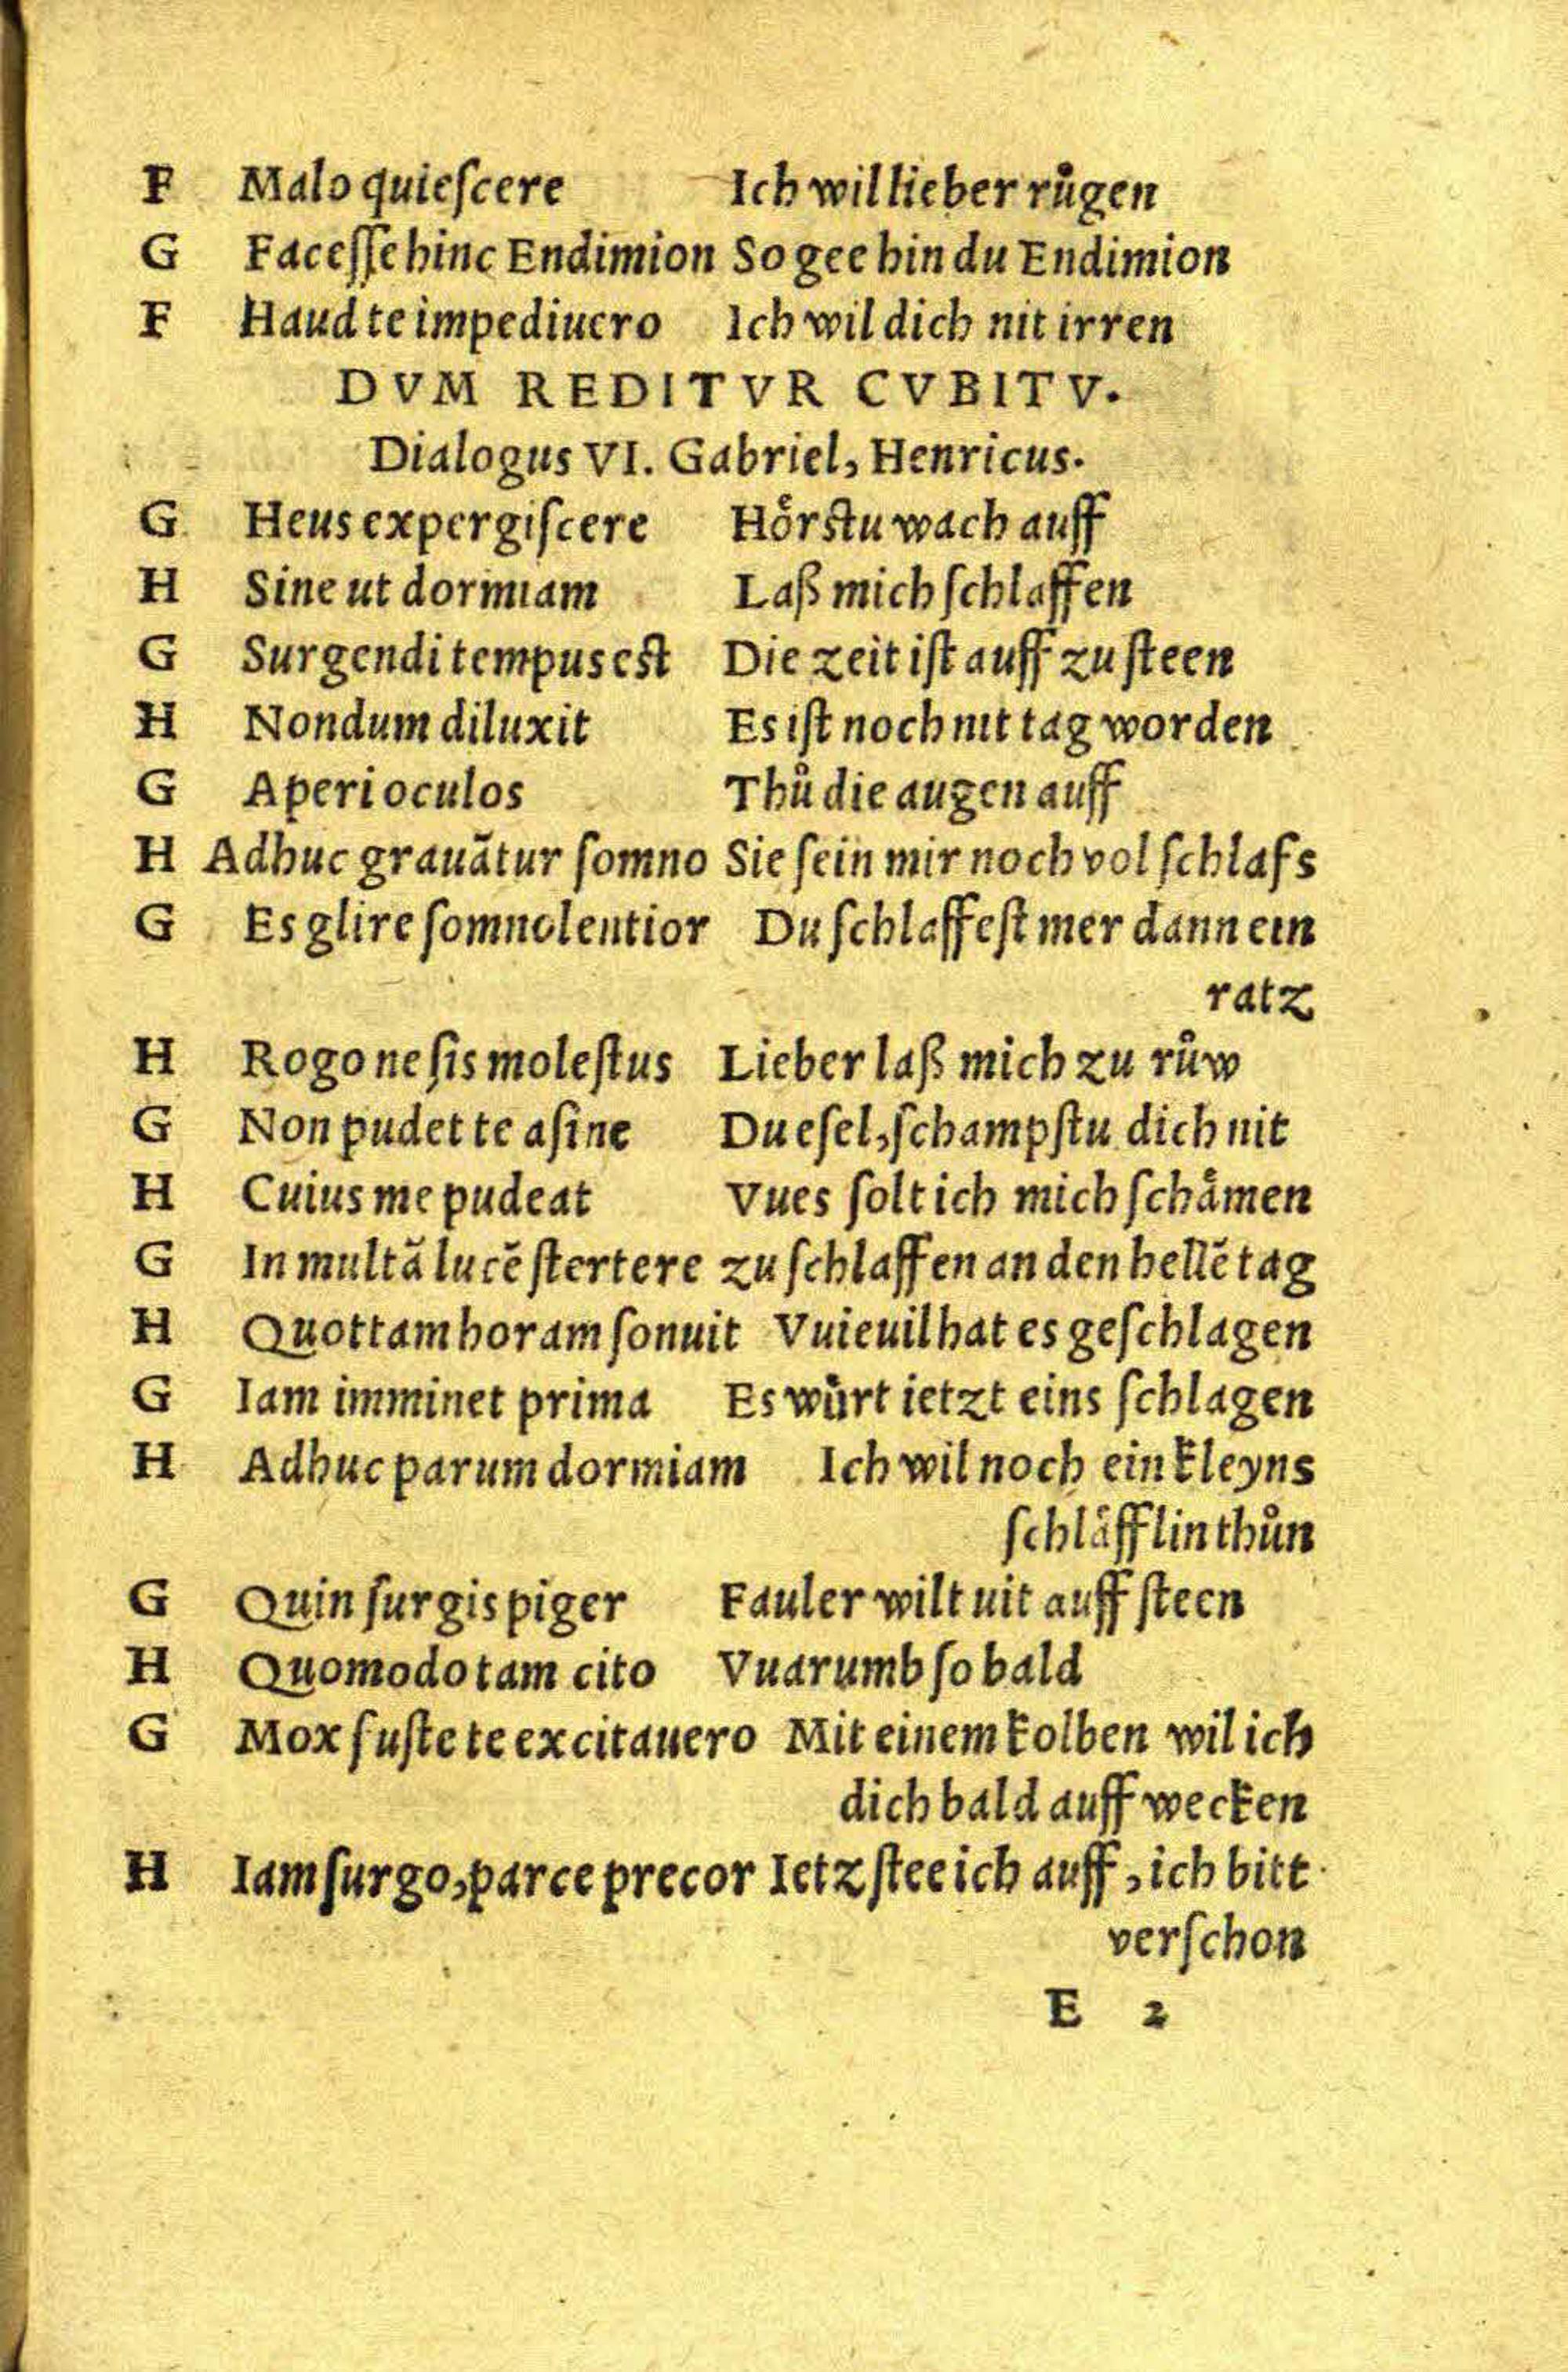 F Malo quieſcere Ich wil lieber růgen
G Faceſſe hinc Endimion So gee hin du Endimion
F Haud te impediuero Ich wil dich nit irren
DVM REDITVR CVBITV.
Dialogus VI. Gabriel, Henricus.
G Heus expergiſcere Hörstu wach auff
H Sine ut dormiam Laß mich ſchlaffen
G Surgendi tempus est Die zeit iſt auff zu ſteen
H Nondum diluxit Es iſt noch nit tag worden
G Aperi oculos Thů die augen auff
H Adhuc grauātur ſomno Sie ſein mir noch vol ſchlafs
G Es glire ſomnolentior Du ſchlaffeſt mer dann ein
ratz
H Rogo ne ſis moleſtus Lieber laß mich zu růw
G Non pudet te aſine Du eſel, ſchampſtu dich nit
H Cuius me pudeat Vues ſolt ich mich ſchämen
G In multā lucē ſtertere zu ſchlaffen an den hellē tag
H Quottam horam ſonuit Vuieuil hat es geſchlagen
G Iam imminet prima Es würt ietzt eins ſchlagen
H Adhuc parum dormiam Ich wil noch ein kleyns
ſchläfflin thůn
G Quin ſurgis piger Fauler wilt nit auff ſteen
H Quomodo tam cito Vuarumb ſo bald
G Mox fuſte te excitauero Mit einem kolben wil ich
dich bald auff wecken
H Iam ſurgo, parce precor Ietz ſtee ich auff, ich bitt
verſchon
E 2